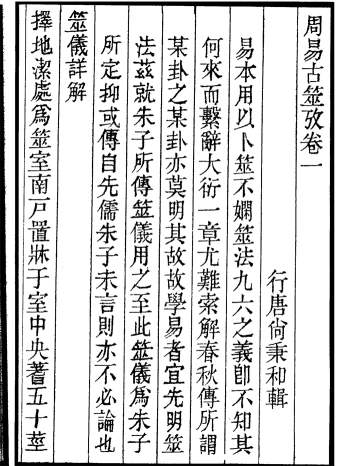 周易古筮攷卷一
行唐尙秉和輯
易本用以卜筮不嫻筮法九六之義卽不知其
何來而繫辭大衍一章尤難索解春秋傳所謂
某卦之某卦亦莫明其故故學易者宜先明筮
法茲就朱子所傳筮儀用之至此筮儀爲朱子
所定抑或傳自先儒朱子未言則亦不必論也
筮儀詳解
擇地潔處爲筮室南戸置牀于室中央蓍五十莖